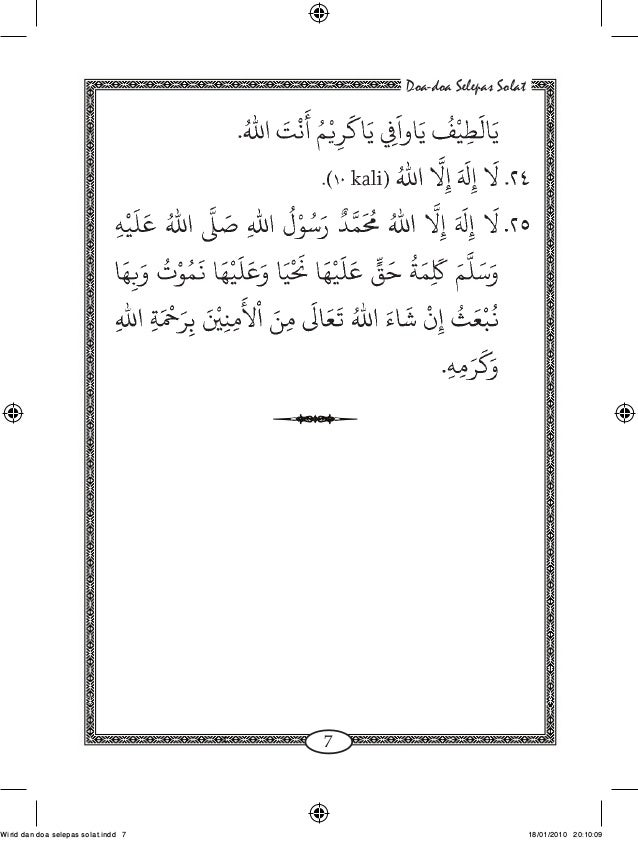 Doa-doa Selepas Solat
يَالَطِيْفُ يَاوَافِي يَاكَرِيْمُ أَنْتَ اللهُ.
٢٤. لَا إِلَهَ إِلَّا اللهُ (١٠ kali).
٢٥. لَا إِلَهَ إِلَّا اللهُ مُحَمَّدٌ رَسُوْلُ اللهِ صَلَّى اللهُ عَلَيْهِ
وَسَلَّمَ كَلِمَةُ حَقٍّ عَلَيْهَا نَحْيَا وَعَلَيْهَا نَمُوْتُ وَبِهَا
نُبْعَثُ إِنْ شَاءَ اللهُ تَعَالَى مِنَ الْأَمِنِيْنَ بِرَحْمَةِ اللهِ
وَكَرَمِهِ.
7
Wirid dan doa selepas solat.indd 7
18/01/2010 20:10:09